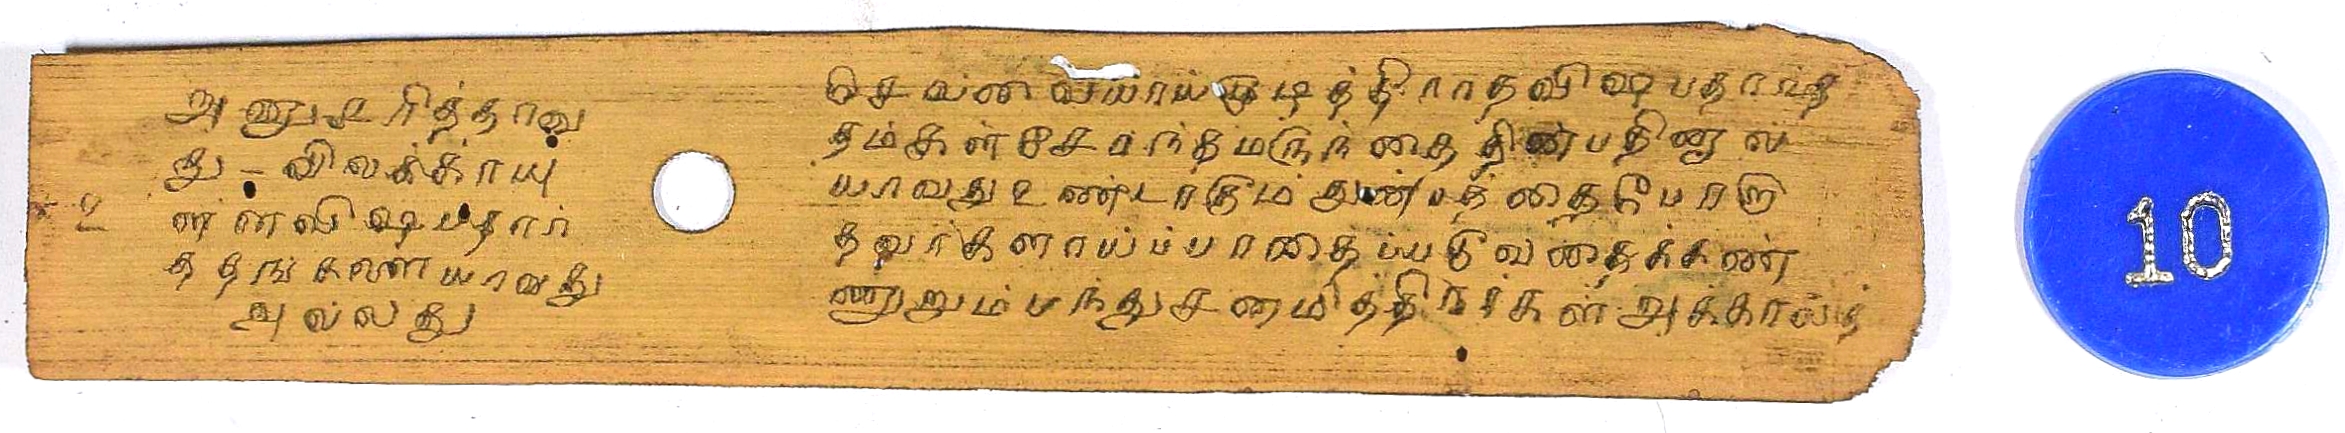 அனுபரித்தாவ
து - விலக்காயு
ள்ளவிஷபதார்
த்தங்களையாவது
அல்லது
உ
செவ்வையாய்குடித்திராதவிஷபதார்த்
தம்கள்சேர்ந்தமருந்தை தின்பதினால்
யாவதுஉண்டாகும்துன்பத்தைபோரு
தவர்களாய்ப்பாதைப்படுவதைக்கண்
ணுறும்பந்துசனமித்திரர்கள்அக்காலத்
10